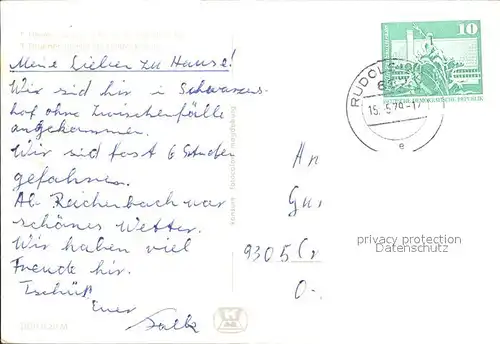 Meine Lieben zu Hause!
Wir sid hir in Schwarzens-
hof ohne Zwischenfälle
angekommen.
Wir sid fast 6 Studen
gefahren.
Ab Reichenbach war
schönes Wetter.
Wir haben viel
Freude hir.
Tschüß
Euer
Falk
10
DEUTSCHE DEMOKRATISCHE REPUBLIK
15.-5.79-17
e
An
9305
privacy protection
Datenschutz